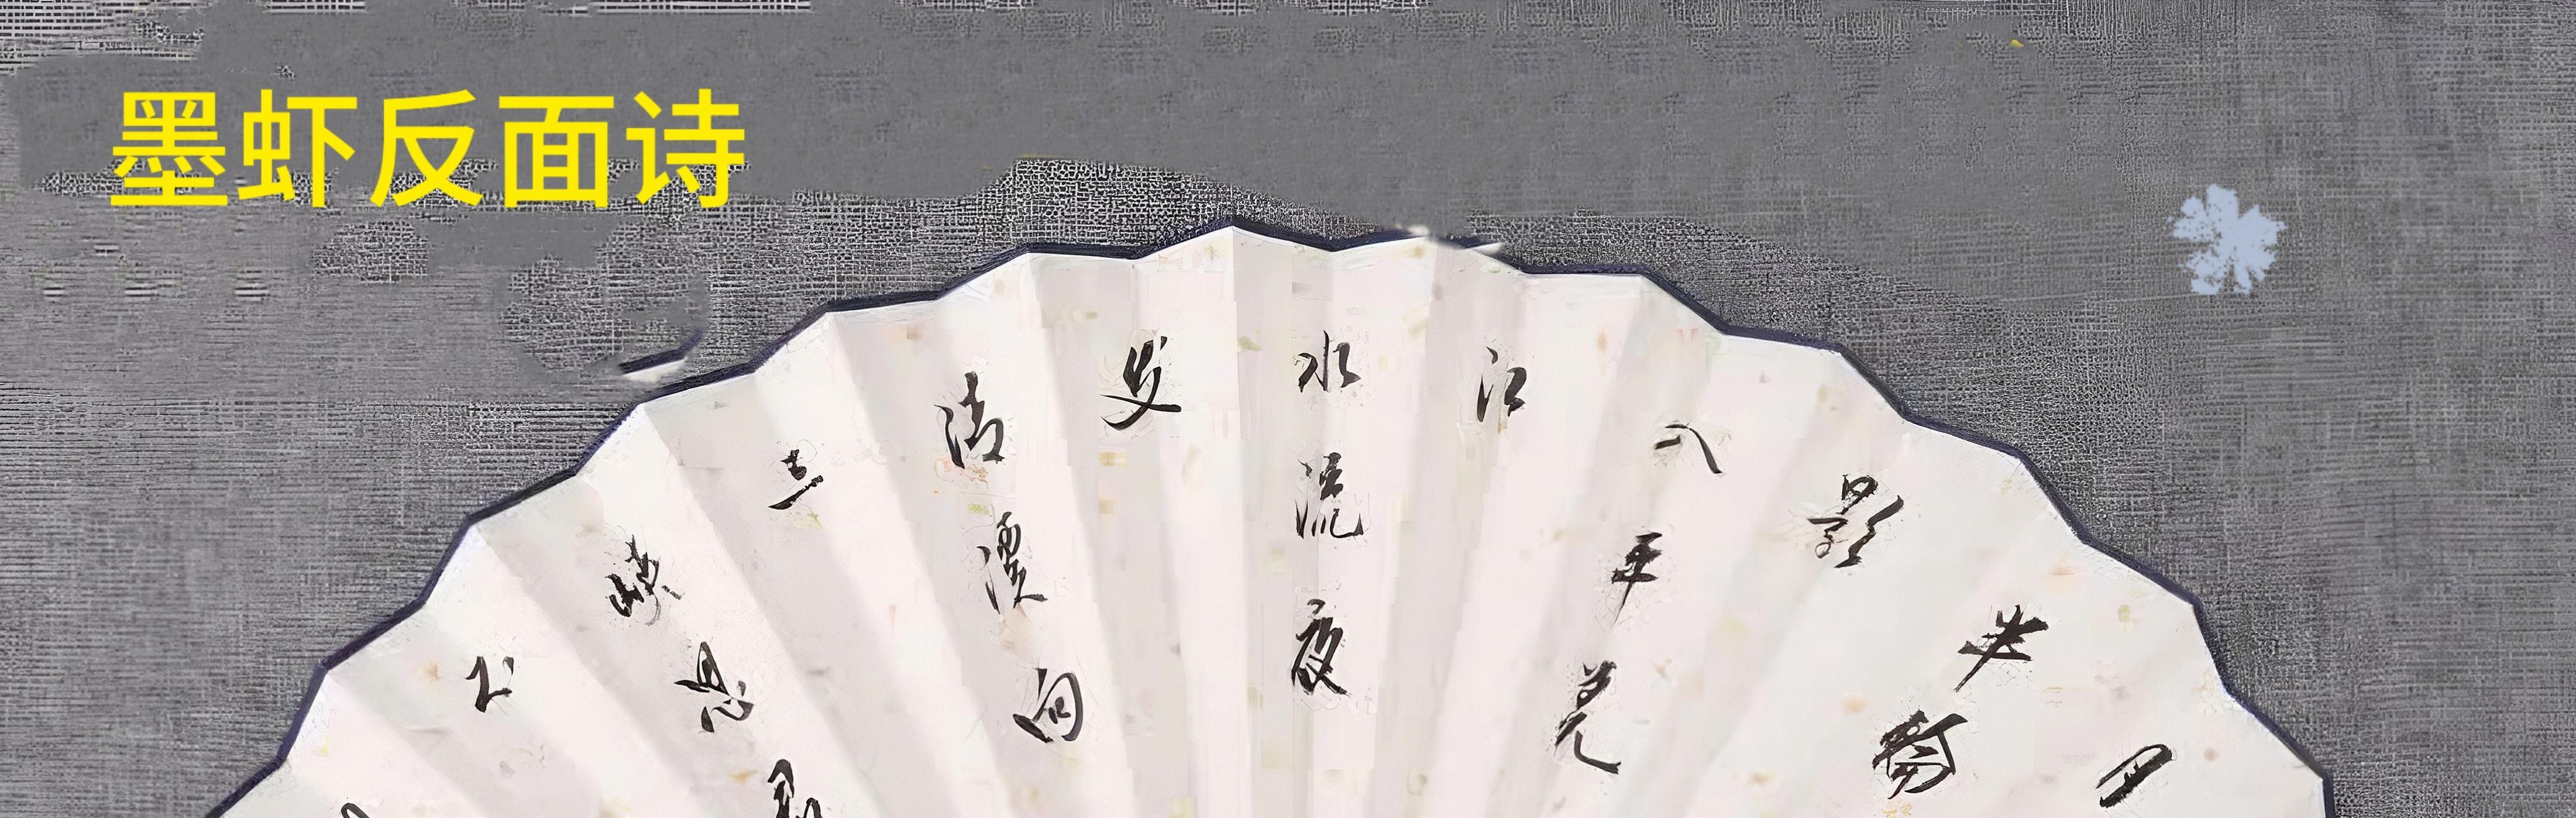 墨虾反面诗
月
半輪
影
入平羌
江
水流夜
发
清溪向
三
峡思君
不